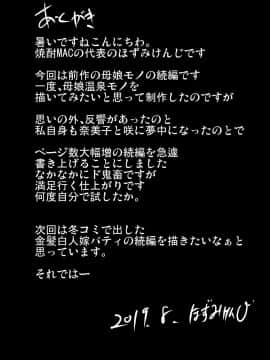 あとがき
暑いですねこんにちわ。
焼酎MACの代表のほずみけんじです
今回は前作の母娘モノの続編です
一度、母娘温泉モノを
描いてみたいと思って制作したのですが
思いの外、反響があったのと
私自身も奈美子と咲に夢中になったのとで
ページ数大幅増の続編を急遽
書き上げることにしました
なかなかにド鬼畜ですが
満足行く仕上がりです
何度自分で試したか。
次回は冬コミで出した
金髪白人嫁パティの続編を描きたいなぁと
思っています。
それではー
2019.8. ほずみけんじ